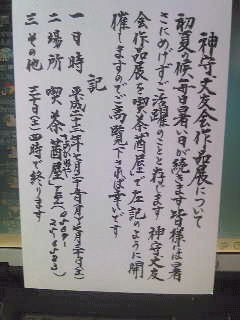 神守文友会作品展について
初夏の候毎日暑い日が続きます皆様には暑
さにめげずご活躍のことと存じます 神守文友
会作品展を喫茶「茜屋」で左記のように開
催しますのでご高覧下されば幸いです
記
一 日時 平成二十三年七月二十 日～七月三十日(土)
二 場所 喫茶「茜屋」
三 その他 三十日(土)四時で終ります